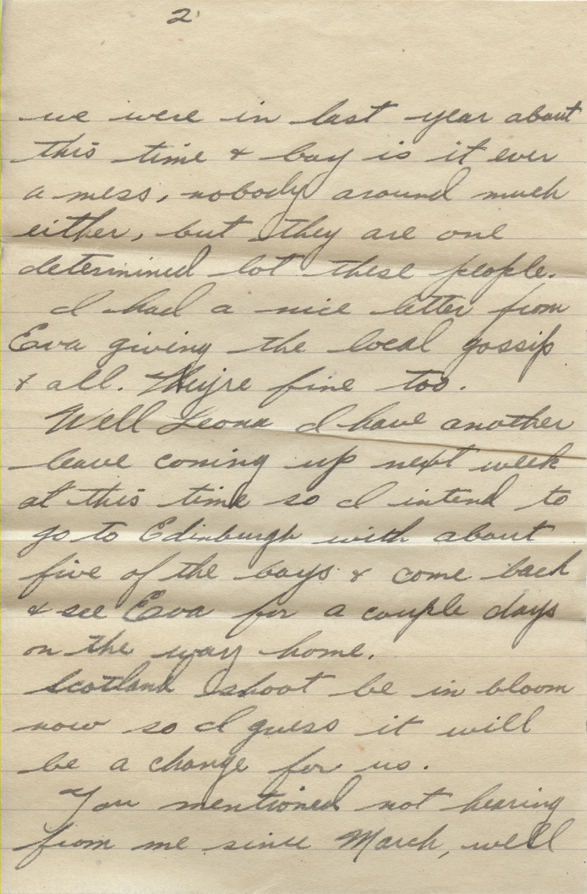 2
we were in last year about
this time & boy is it ever
a mess, nobody around much
either, but they are one
determined lot these people.
I had a nice letter from
Eva giving the local gossip
& all. They're fine too.
Well Leona I have another
leave coming up next week
at this time so I intend to
go to Edinburgh with about
five of the boys & come back
& see Eva for a couple days
on the way home.
Scotland shoot be in bloom
now so I guess it will
be a change for us.
You mentioned not hearing
from me since March, well